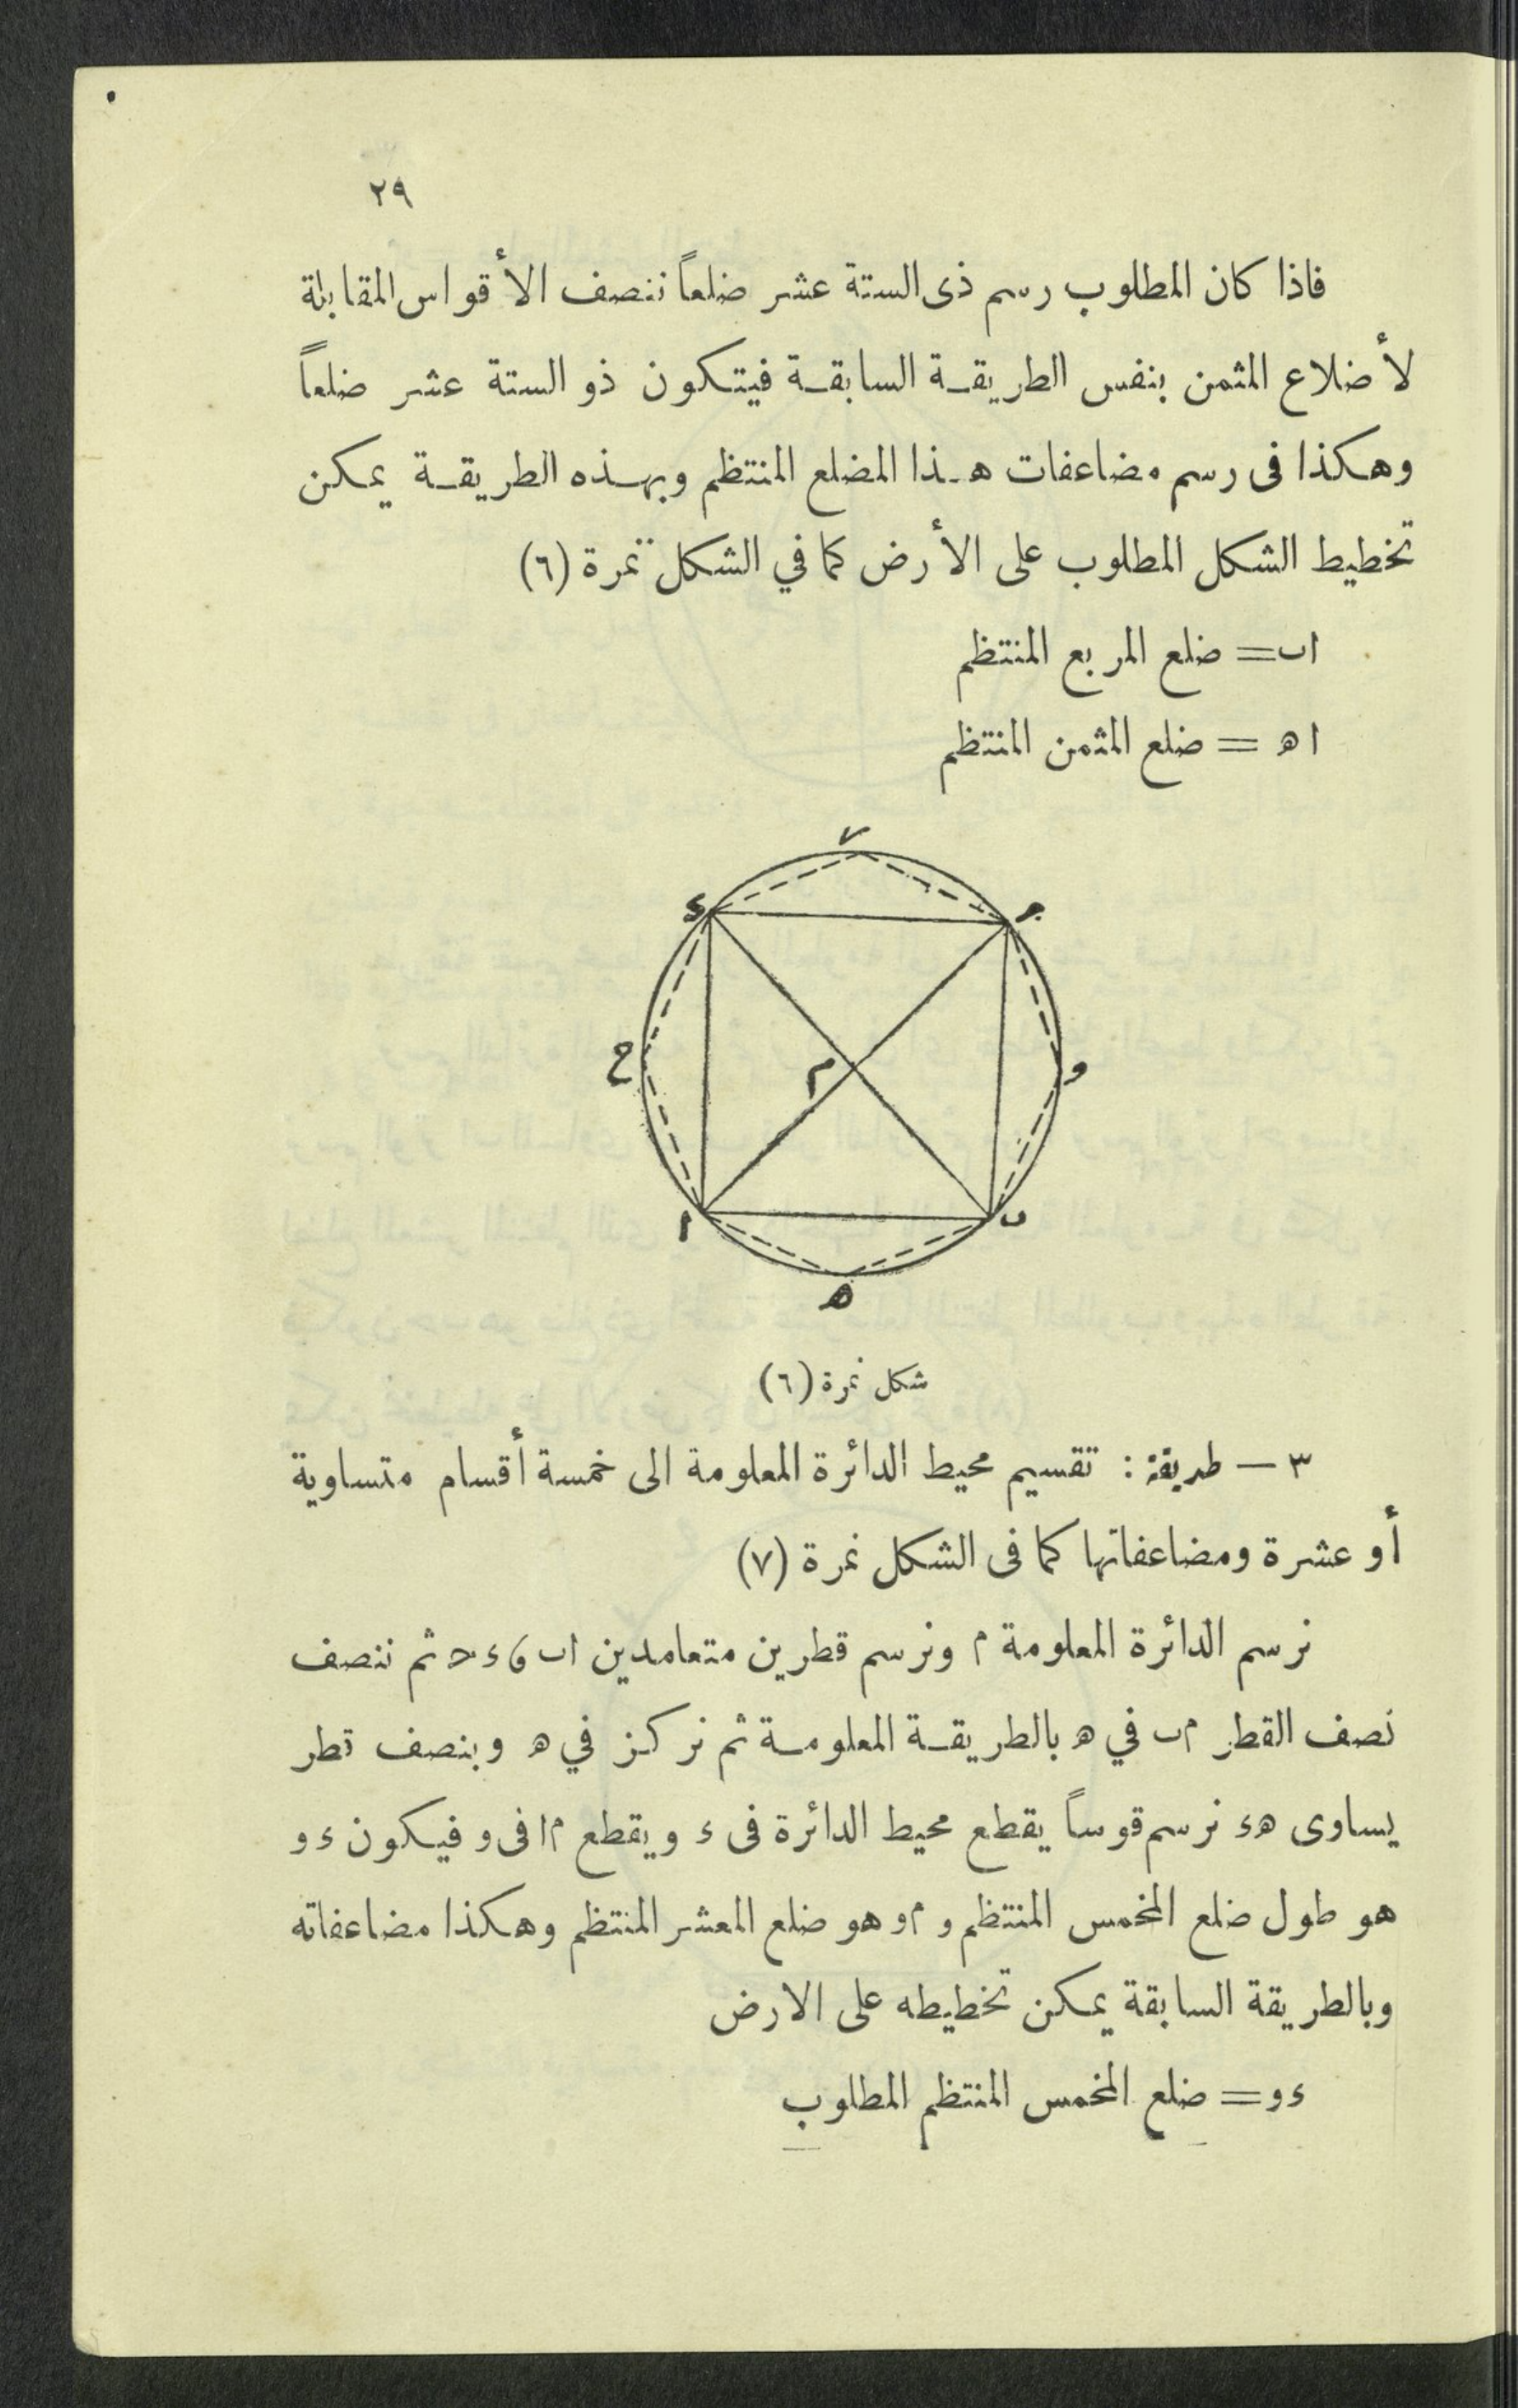 ٢٩
فاذا كان المطلوب رسم ذى الستة عشر ضلعاً ننصف الأقواس المقابلة
لأضلاع المثمن بنفس الطريقة السابقة فيتكون ذو الستة عشر ضلعاً
وهكذا فى رسم مضاعفات هذا المضلع المنتظم وبهذه الطريقة يمكن
تخطيط الشكل المطلوب على الأرض كما في الشكل نمرة (٦)
اب = ضلع المربع المنتظم
اه = ضلع المثمن المنتظم
ء
ج
ح
م
و
ا
ب
ه
شكل نمرة (٦)
٣ — طريقة : تقسيم محيط الدائرة المعلومة الى خمسة أقسام متساوية
أو عشرة ومضاعفاتها كما فى الشكل نمرة (٧)
نرسم الدائرة المعلومة م ونرسم قطرين متعامدين اب و ءح ثم ننصف
نصف القطر م ب في ه بالطريقة المعلومة ثم نركز في ه وبنصف قطر
يساوى هء نرسم قوساً يقطع محيط الدائرة فى ء ويقطع م ا فى و فيكون ء و
هو طول ضلع المخمس المنتظم و م و هو ضلع المعشر المنتظم وهكذا مضاعفاته
وبالطريقة السابقة يمكن تخطيطه على الارض
ء و = ضلع المخمس المنتظم المطلوب